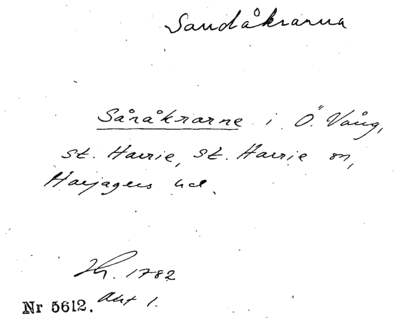 Sandåkrarna
Såråkrarne i Ö. Vång,
St. Harrie, St. Harrie sn,
Harjagers hd.
1782
Nr 5612. Akt 1.